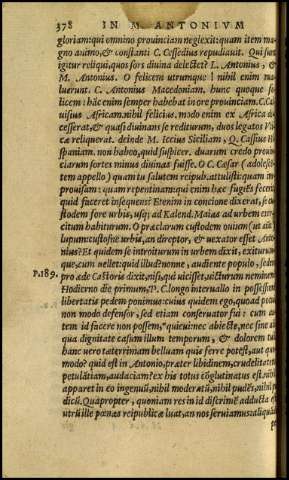 378 IN M. ANTONIVM
gloriam: qui omnino prouinciam neglexit: quam item ma-
gno animo, & constanti C. Cessedius repudiauit. Qui sunt
igitur reliqui, quos sors diuina delectet? L. Antonius, &
M. Antonius. O felicem utrunque! nihil enim ma-
luerunt. C. Antonius Macedoniam. hunc quoque fe-
licem: hãc enim semper habebat in ore prouinciam. C. Cal
uisius Africam. nihil felicius. modo enim ex Africa de
cesserat, & quasi diuinans se rediturum, duos legatos Vti
cæ reliquerat. deinde M. Iccius Siciliam, Q. Cassius Hi-
spaniam. non habeo, quid suspicer. duarum credo prouin
ciarum sortes minus diuinas fuisse. O C. Cæsar (adolescẽ
tem appello) quam tu salutem reipub. attulisti: quam im
prouisam: quam repentinam: qui enim hæc fugiẽs fecerit,
quid faceret insequens? Etenim in concione dixerat, se cu
stodem fore urbis, usq; ad Kalend. Maias ad urbem exer
citum habiturum. O præclarum custodem ouium (ut aiũt)
lupum: custos ne urbis, an direptor, & uexator esset Anto-
nius? Et quidem se introiturum in urbem dixit, exiturum
que, cum uellet: quid illud? nonne, audiente populo, sedens
P.189. pro æde Castoris dixit, nisi, qui uicisset, uicturum neminem?
Hodierno die primum, P. C. longo interuallo in possessione
libertatis pedem ponimus: cuius quidem ego, quoad potui,
non modo defensor, sed etiam conseruator fui: cum au
tem id facere non possem, quieui: nec abiecte, nec sine ali
qua dignitate casum illum temporum, & dolorem tuli.
hanc uero taeterrimam belluam quis ferre potest, aut quo
modo? quid est in Antonio, præter libidinem, crudelitatẽ,
petulãtiam, audaciam? ex his totus cõglutinatus est. nihil
apparet in eo ingenuũ, nihil moderatũ, nihil pudẽs, nihil pu
dicũ. Quapropter, quoniam res in id discrimẽ adducta est,
utrũ ille pœnas reipublicæ luat, an nos seruiamus: aliquãdo